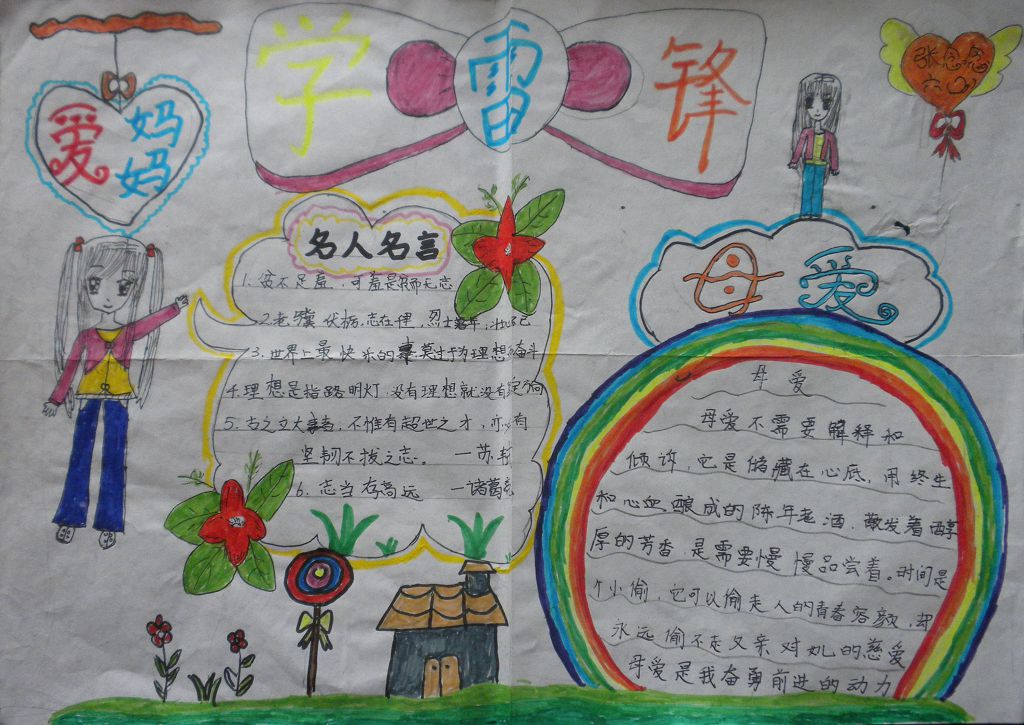 学雷锋
爱妈妈
张思思
名人名言
1. 贫不足羞，可羞是贫而无志
2. 老骥伏枥，志在千里，烈士暮年，壮心不已
3. 世界上最快乐的事莫过于为理想奋斗
4. 理想是指路明灯，没有理想就没有坚定方向
5. 古之立大事者，不惟有超世之才，亦必有
坚韧不拔之志。 —苏轼
6. 志当存高远 —诸葛亮
母爱
母爱
母爱不需要解释和
倾诉，它是储藏在心底，用终生
和心血酿成的陈年老酒，散发着醇
厚的芳香，是需要慢慢品尝着。时间是
个小偷，它可以偷走人的青春容颜，却
永远偷不走父亲对儿的慈爱
母爱是我奋勇前进的动力